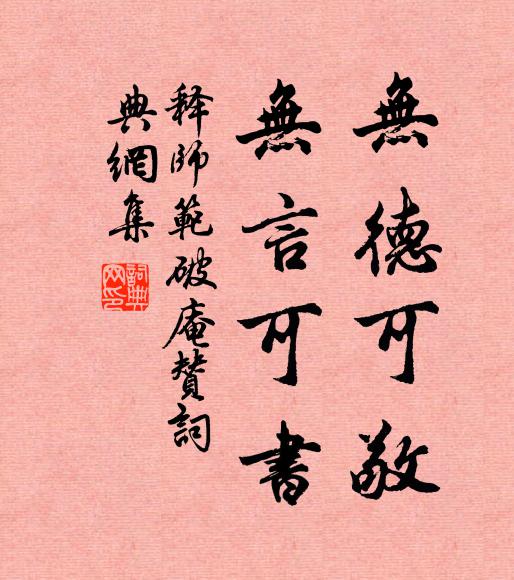 無德可敬
無言可書
釋師範破庵贊詞
典網集
詞典網印